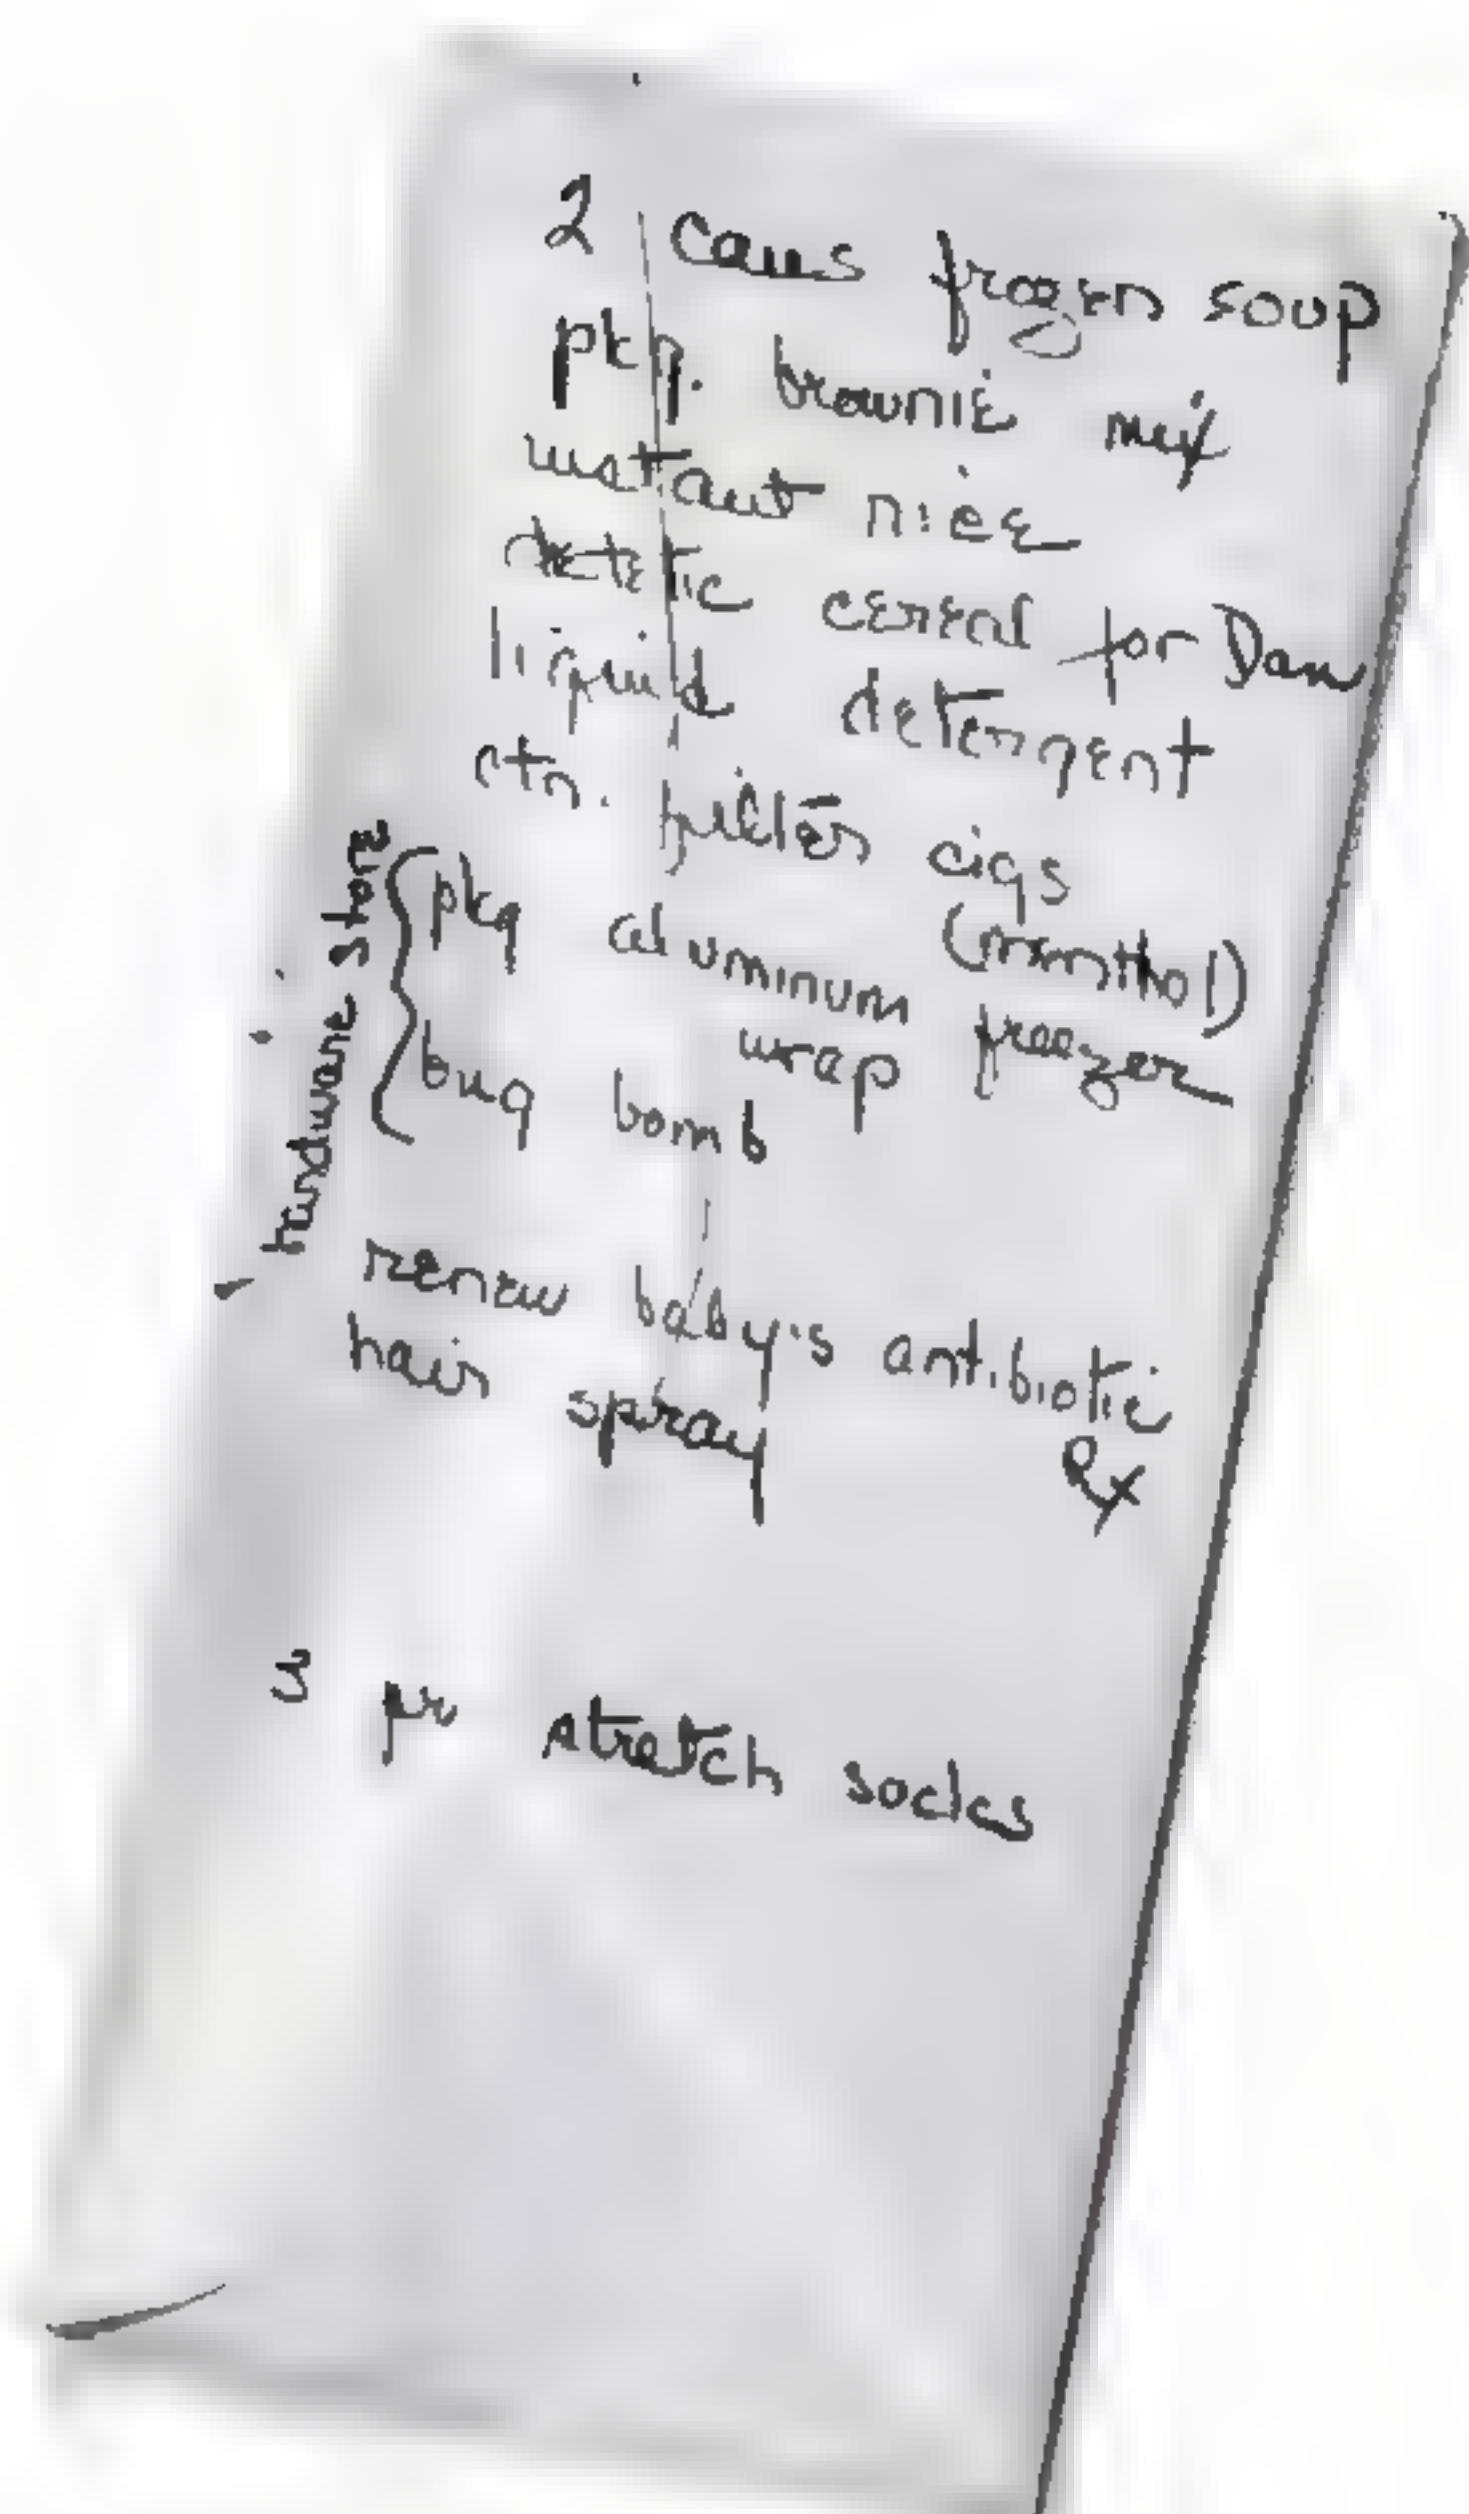 2 cans frozen soup
pkg. brownie mix
instant rice
dietetic cereal for Dan
liquid detergent
ctn. filter cigs
(menthol)
hardware store
pkg aluminum freezer
wrap
bug bomb
renew baby's antibiotic
Rx
hair spray
3 pr stretch socks